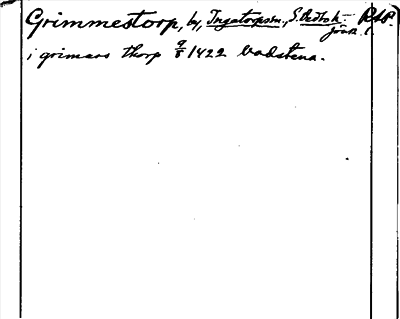 Grimmestorp, by, Ingatorpssn, S. Vedbo h. RAP.
Jönk. l.
i grimars thorp 9/8 1422 Vadstena.